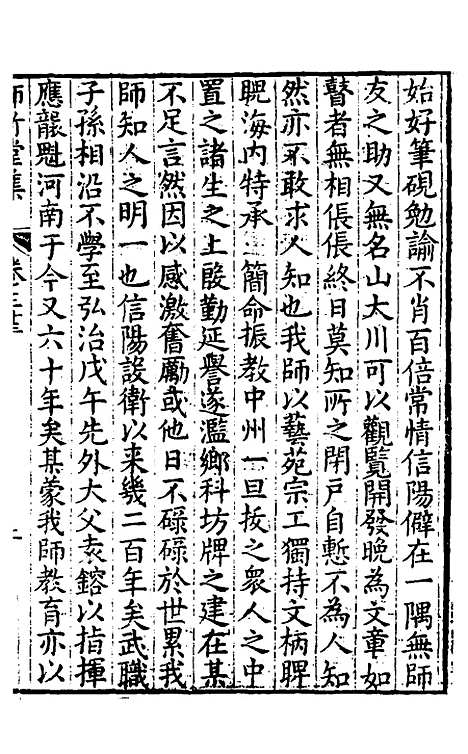 始好筆硯勉諭不肖百倍常情信陽僻在一隅無師
友之助又無名山大川可以觀覽開發晚為文章如
瞽者無相倀倀終日莫知所之閉戶自慙不為人知
然亦不敢求人知也我師以藝苑宗工獨持文柄睥
睨海內特承 簡命振教中州一旦拔之衆人之中
置之諸生之上殷勤延譽遂濫鄉科坊牌之建在某
不足言然因以感激奮勵或他日不碌碌於世累我
師知人之明一也信陽設衛以来幾二百年矣武職
子孫相沿不學至弘治戊午先外大父袁鎔以指揮
應襲魁河南于今又六十年矣某蒙我師教育亦以
師竹堂集 卷之三十三